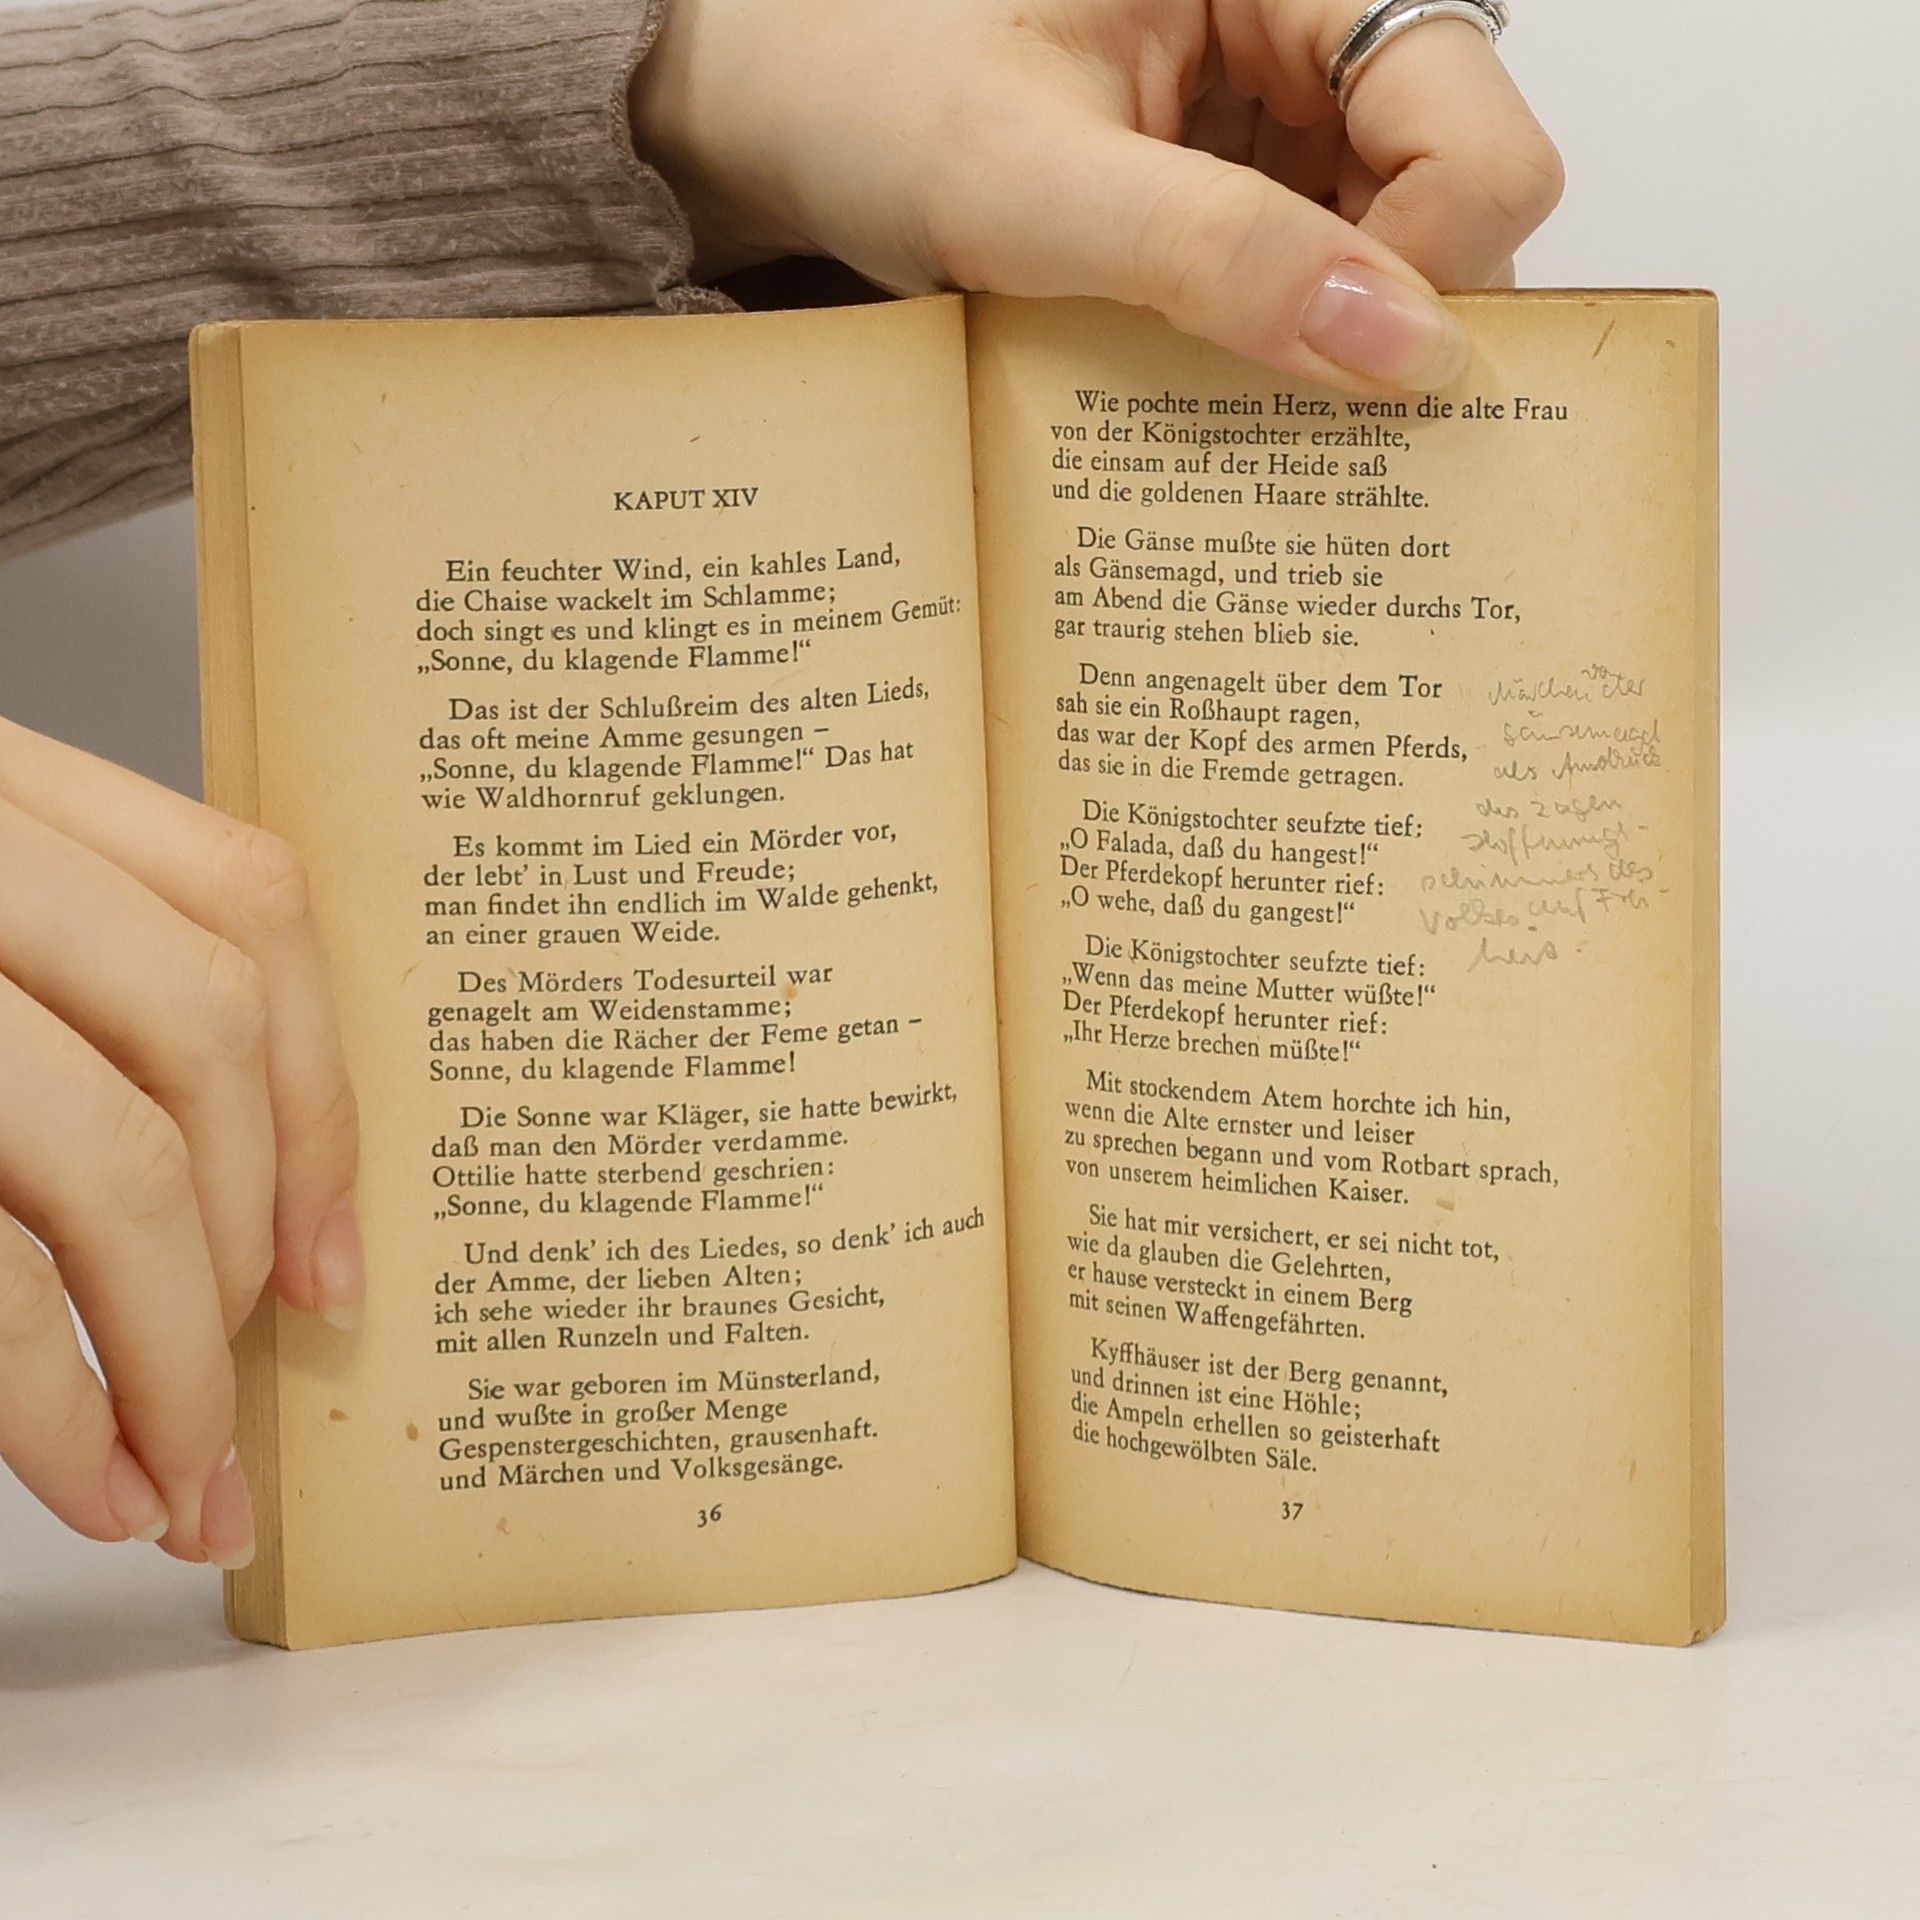 KAPUT XIV
Ein feuchter Wind, ein kahles Land,
die Chaise wackelt im Schlamme;
doch singt es und klingt es in meinem Gemüt:
„Sonne, du klagende Flamme!“
Das ist der Schlußreim des alten Lieds,
das oft meine Amme gesungen –
„Sonne, du klagende Flamme!“ Das hat
wie Waldhornruf geklungen.
Es kommt im Lied ein Mörder vor,
der lebt’ in Lust und Freude;
man findet ihn endlich im Walde gehenkt,
an einer grauen Weide.
Des Mörders Todesurteil war
genagelt am Weidenstamme;
das haben die Rächer der Feme getan –
Sonne, du klagende Flamme!
Die Sonne war Kläger, sie hatte bewirkt,
daß man den Mörder verdamme.
Ottilie hatte sterbend geschrien:
„Sonne, du klagende Flamme!“
Und denk’ ich des Liedes, so denk’ ich auch
der Amme, der lieben Alten;
ich sehe wieder ihr braunes Gesicht,
mit allen Runzeln und Falten.
Sie war geboren im Münsterland,
und wußte in großer Menge
Gespenstergeschichten, grausenhaft.
und Märchen und Volksgesänge.
36
Wie pochte mein Herz, wenn die alte Frau
von der Königstochter erzählte,
die einsam auf der Heide saß
und die goldenen Haare strählte.
Die Gänse mußte sie hüten dort
als Gänsemagd, und trieb sie
am Abend die Gänse wieder durchs Tor,
gar traurig stehen blieb sie.
Denn angenagelt über dem Tor
sah sie ein Roßhaupt ragen,
das war der Kopf des armen Pferds,
das sie in die Fremde getragen.
Die Königstochter seufzte tief:
„O Falada, daß du hangest!“
Der Pferdekopf herunter rief:
„O wehe, daß du gangest!“
Die Königstochter seufzte tief:
„Wenn das meine Mutter wüßte!“
Der Pferdekopf herunter rief:
„Ihr Herze brechen müßte!“
Mit stockendem Atem horchte ich hin,
wenn die Alte ernster und leiser
zu sprechen begann und vom Rotbart sprach,
von unserem heimlichen Kaiser.
Sie hat mir versichert, er sei nicht tot,
wie da glauben die Gelehrten,
er hause versteckt in einem Berg
mit seinen Waffengefährten.
Kyffhäuser ist der Berg genannt,
und drinnen ist eine Höhle;
die Ampeln erhellen so geisterhaft
die hochgewölbten Säle.
37
von
Märchen der
Gänsemagd
als Ausdruck
des
Hoffnungs-
schimmers des
Volkes auf Frei-
heit